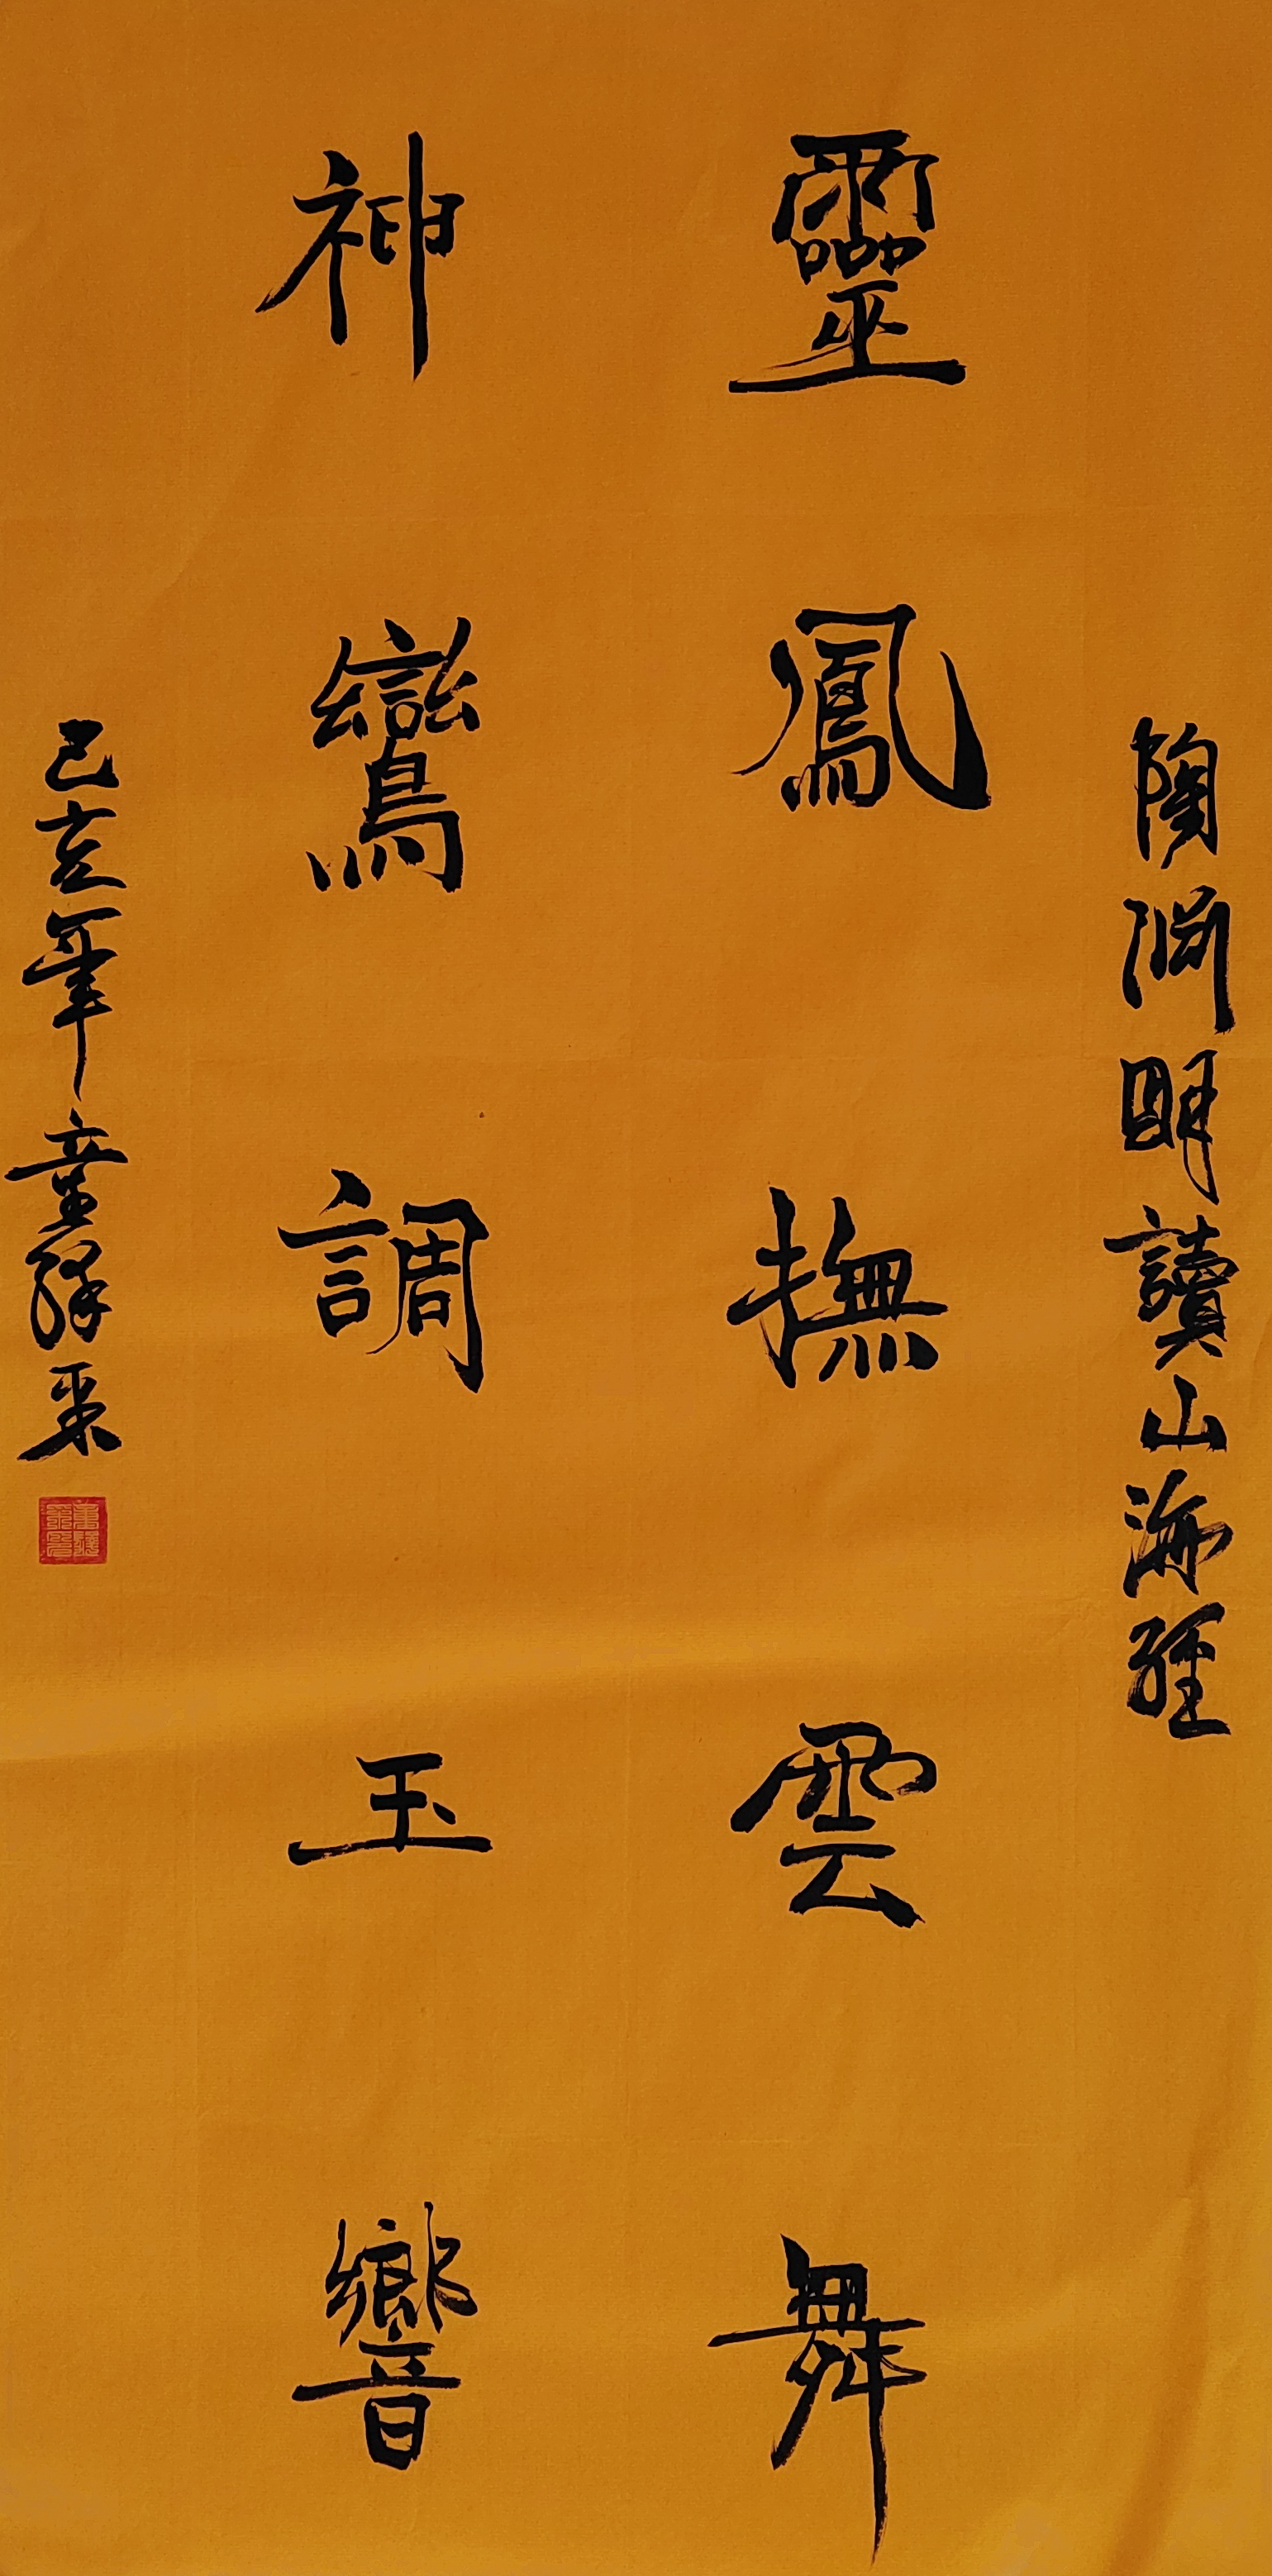 陶淵明讀山海經
靈鳳撫雲舞
神鸞調玉響
己亥年童繹采